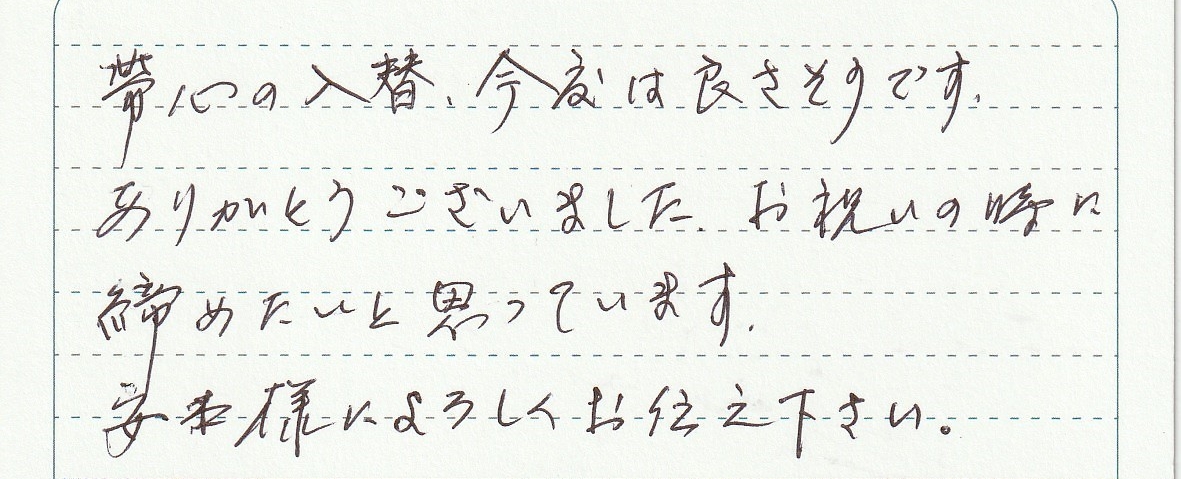 帯心の入替、今度は良さそうです.
ありがとうございました. お祝いの時に
締めたいと思っています.
様によろしくお伝え下さい。